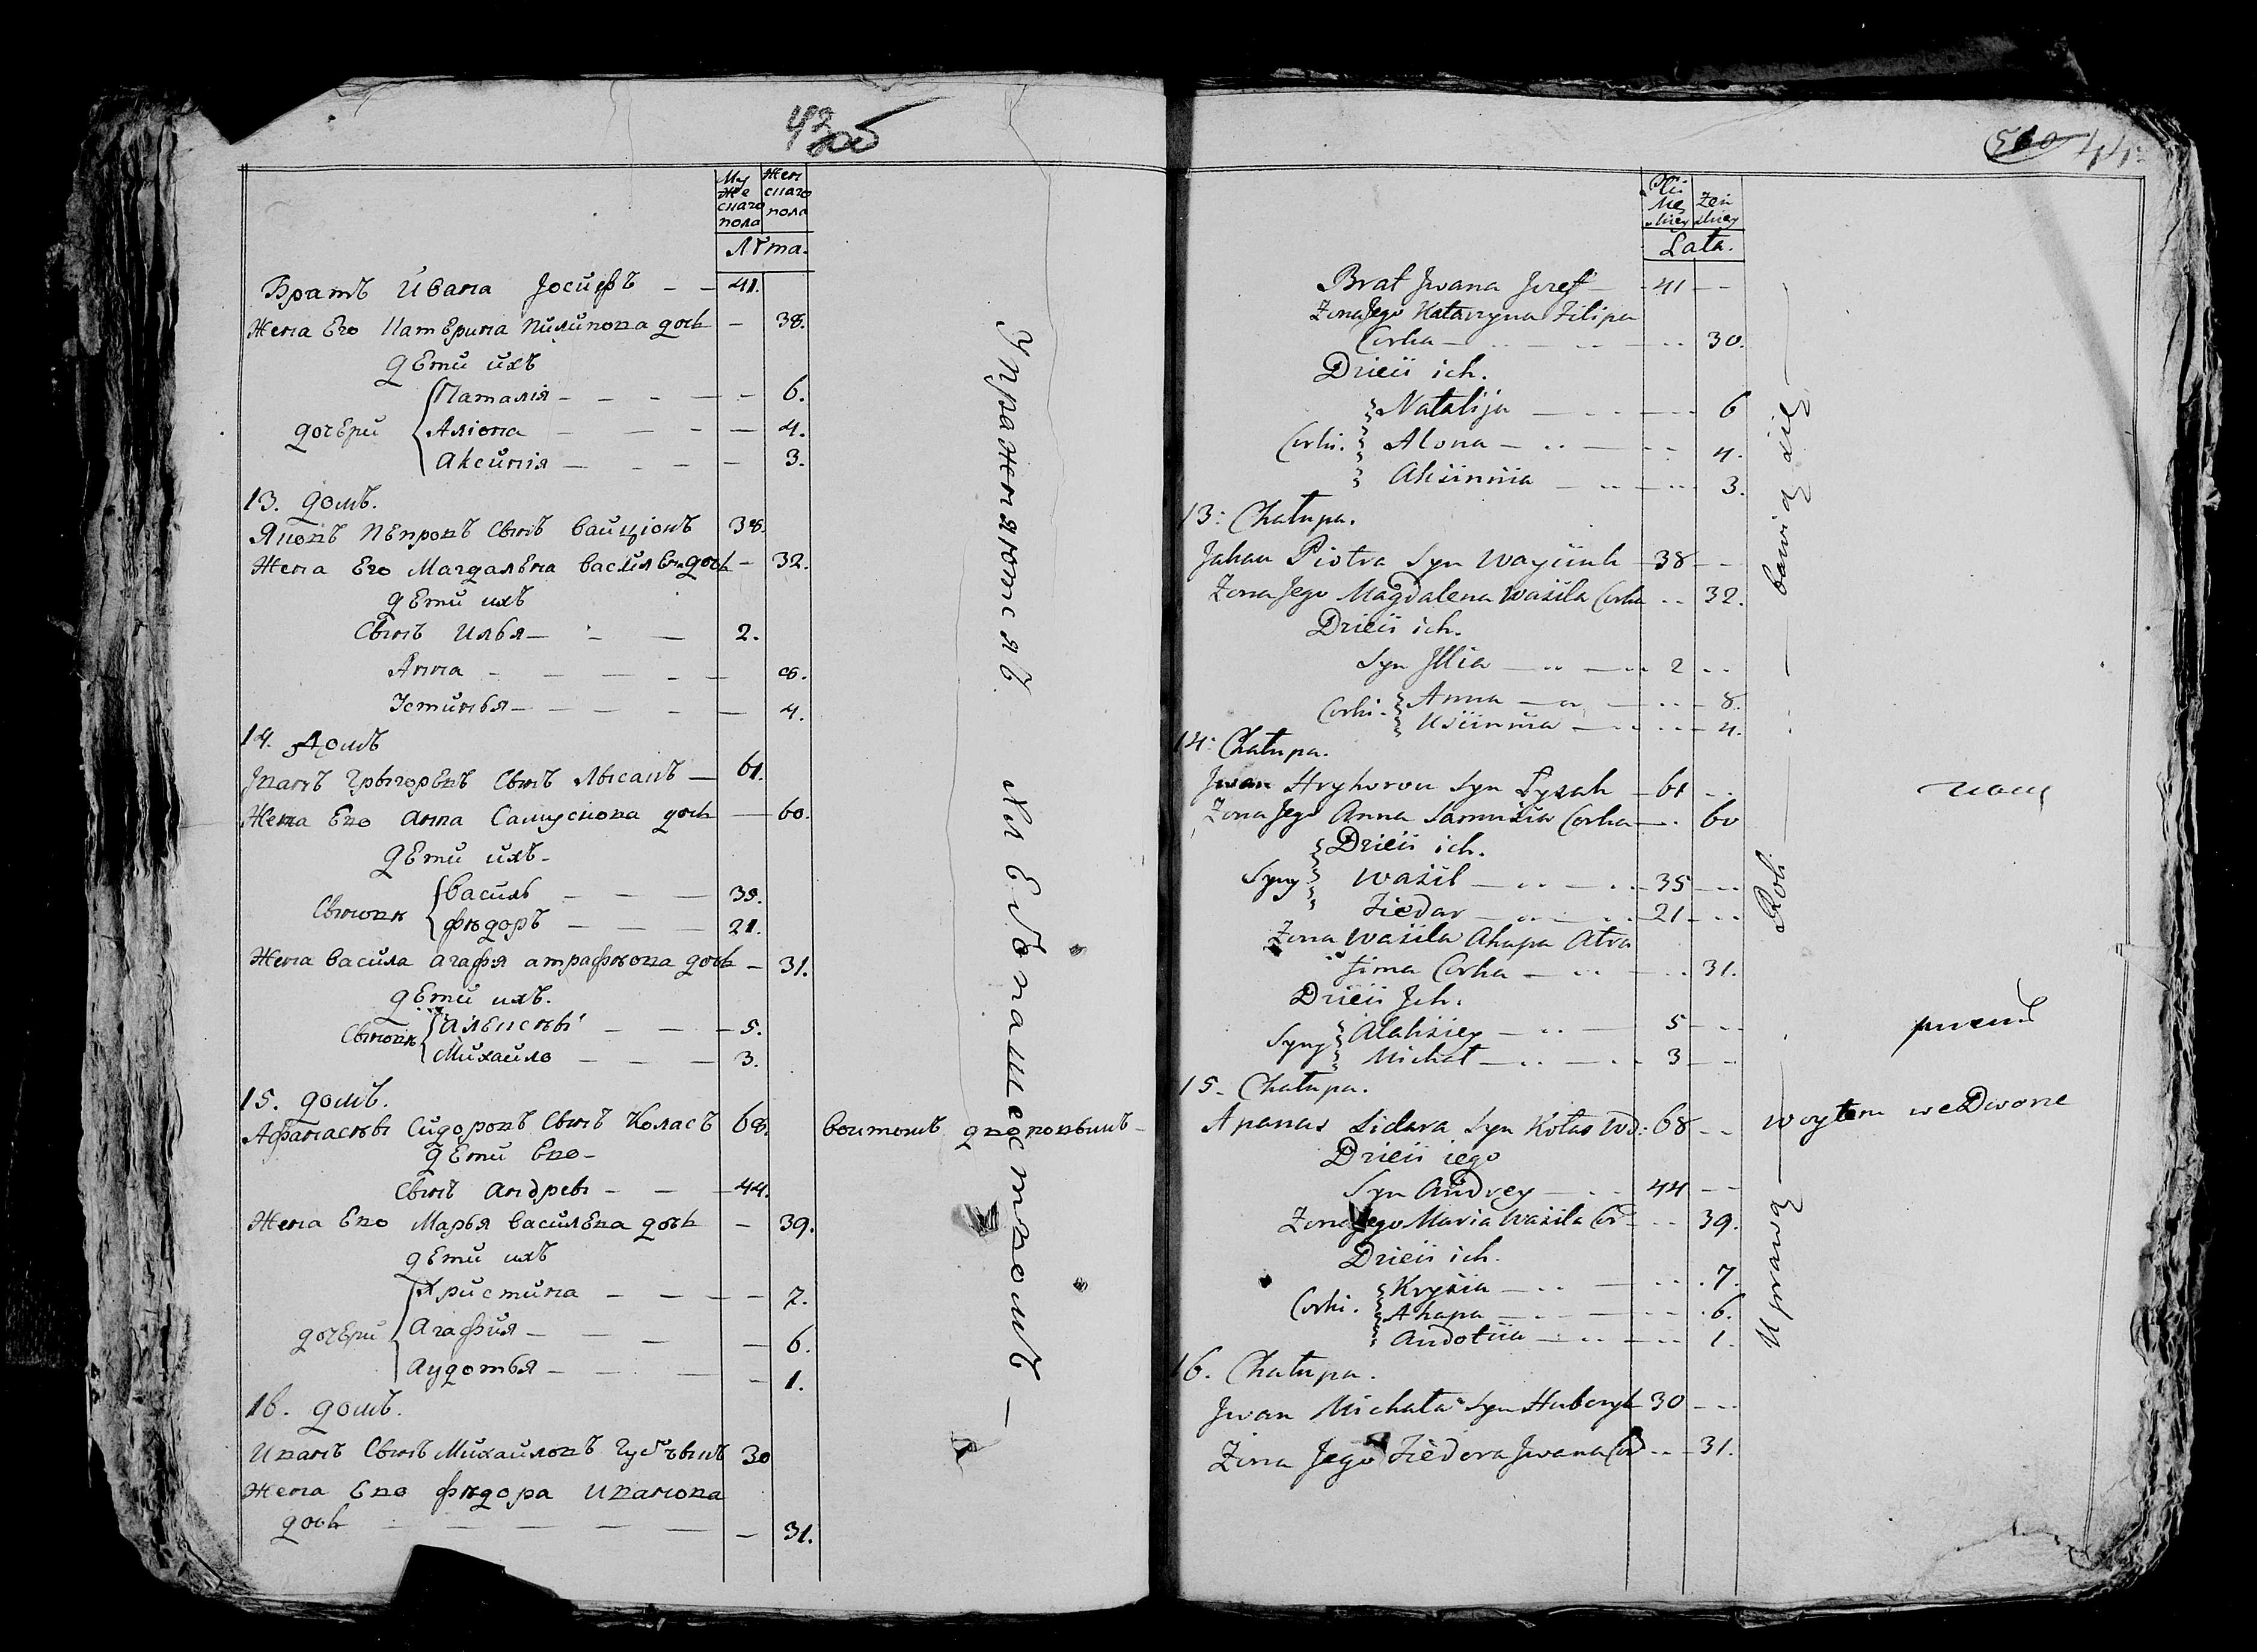 42 об
Му
же
скаго
пола
Жен
скаго
пола
Лѣта.
Братъ Ивана Іосифъ — — 41.
Жена Его Катерина Пилипова дочь — 38.
дЕти ихъ
дочЕри
Наталія — — — — — 6.
Аліона — — — — 4.
Аксинія — — — — 3.
13. домъ.
Яковъ ПЕтровъ Сынъ Вайціокъ 38.
Жена Его МагдалЕна ВасилЕва дочь — 32.
дЕти ихъ
Сынъ Илья — — — 2.
Анна — — — — — 8.
Устинья — — — — — 4.
14. Домъ
Іванъ ГрыгорЕвъ Сынъ Лысакъ — 61.
Жена Ево Анна Самусиова дочь — 60.
дЕти ихъ —
Сыновя
Василь — — — 35.
Фѣдоръ — — — 21.
Жена Васила Агафя Атрафѣова дочь — 31.
дЕти ихъ.
Сыновя
Алексѣй — — — 5.
Михайло — — — 3.
15. домъ.
Афанасѣй Сидоровъ Сынъ Коласъ 68. войтомъ дворовымъ —
дЕти Ево —
Сынъ Андрей — — — 44.
Жена Ево Марья ВасилЕва дочь — 39.
дЕти ихъ
дочЕри
Христина — — — — 7.
Агафия — — — — 6.
Аудотья — — — — 1.
16. домъ.
Иванъ Сынъ Михайловъ 30
Жена Ево Фѣдора Иванова
дочь — — — — — — 31.
Упражняются хлЕбопашествомъ —
500 44
Mę
skiey
Zen
skiey
Lata.
Brat Jwana Jozef — 41 — —
Zona Jego Katarzyna Filipa
Corka — .. — .. — .. 30.
Dzieci ich.
Corki.
Natalija — .. — .. 6
Alona — .. — .. 4.
Aksiinnia — .. — .. 3.
13: Chałupa.
Jakau Piotra Syn Wayciuk — 38 — —
Zona Jego Magdalena Wasila Corka .. 32.
Dzieci ich.
Syn Jllia — .. — .. 2 ..
Corki.
Anna — .. — .. 8.
Usciinnia — .. — .. 4.
14: Chałupa.
Jwan Hryhorou Syn Łysak — 61 ..
Zona Jego Anna Samusia Corka — . 60
Dzieci ich.
Syny
Wasil — .. — .. 35 — ..
Fiedar — .. — .. 21 — ..
Zona Wasila Ahapa Atra
fima Corka — .. — .. 31.
Dzieci Jch.
Syny
Alaksiey — .. — 5 — ..
Michał — .. — .. 3 — —
15. Chałupa.
Apanas Sidara Syn Kołas Wd: 68 — — woytem we Dworze
Dzieci iego
Syn Andrey — . . 44 — —
Zona Jego Maria Wasila Cor .. 39.
Dzieci ich.
Corki.
Krysia — .. — .. 7.
Ahapa — .. — .. 6.
Audotiia — .. — .. 1.
16. Chałupa.
Jwan Michała Syn Hubczyk 30 — ..
Zona Jego Fiedora Jwana Cor .. 31.
Uprawą Roli bawią się